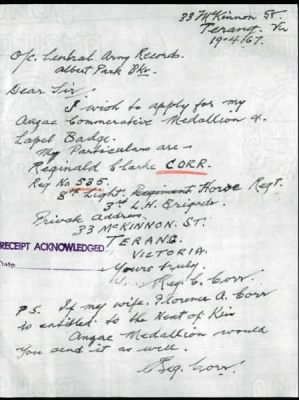 33 McKinnon St.
Terang. Vic
19-4/67.
O/c. Central Army Records.
Albert Park Bks.
Dear Sir.
I wish to apply for my
Anzac Commerative Medallion &
Lapel Badge.
My Particulars are -
Reginald Clarke CORR.
Reg No 535.
8th Light. Regiment Horse Regt.
3rd L.H. Brigade.
Private Address.
33 McKINNON. ST.
TERANG.
VICTORIA.
RECEIPT ACKNOWLEDGED
Date
Yours truly
Reg. C. Corr.
P.S. If my wife. Florence A. Corr
is entitled. to the Next of Kin
Anzac Medallion would
you send it as well.
Reg. Corr.